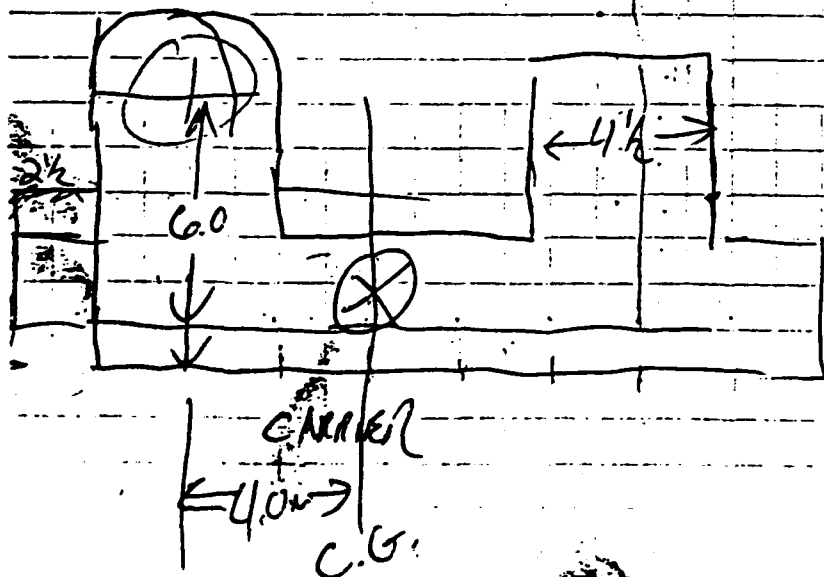 4½
2½
6.0
CARRIER
4.0
C.G.